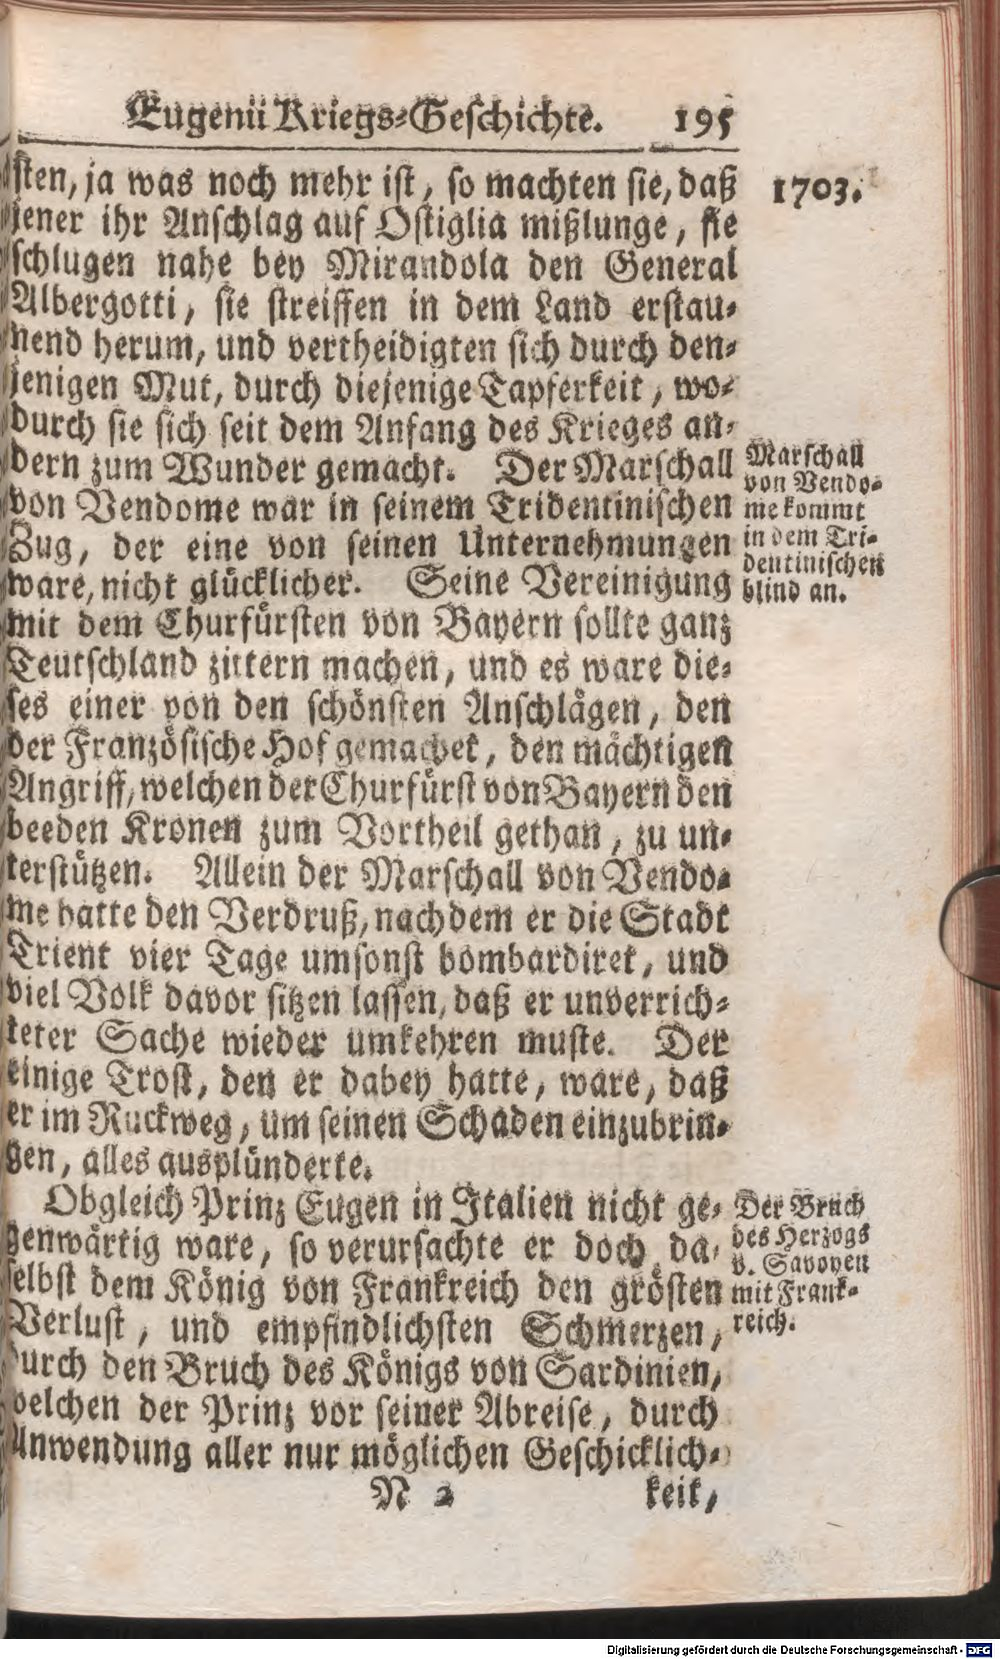 Eugenii Kriegs-Geschichte. 195
sten, ja was noch mehr ist, so machten sie, daß
1703.
jener ihr Anschlag auf Ostiglia mißlunge, sie
schlugen nahe bey Mirandola den General
Albergotti, sie streiffen in dem Land erstau-
nend herum, und vertheidigten sich durch den-
jenigen Mut, durch diejenige Tapferkeit, wo-
durch sie sich seit dem Anfang des Krieges an-
dern zum Wunder gemacht. Der Marschall
von Vendome war in seinem Tridentinischen
Zug, der eine von seinen Unternehmungen
ware, nicht glücklicher. Seine Vereinigung
Marschall
von Vendo-
me kommt
in dem Tri-
dentinischen
blind an.
mit dem Churfürsten von Bayern sollte ganz
Teutschland zittern machen, und es ware die-
ses einer von den schönsten Anschlägen, den
der Französische Hof gemachet, den mächtigen
Angriff, welchen der Churfürst von Bayern den
beeden Kronen zum Vortheil gethan, zu un-
terstützen. Allein der Marschall von Vendo-
me hatte den Verdruß, nachdem er die Stadt
Trient vier Tage umsonst bombardiret, und
viel Volk davor sitzen lassen, daß er unverrich-
teter Sache wieder umkehren muste. Der
einige Trost, den er dabey hatte, ware, daß
er im Ruckweg, um seinen Schaden einzubrin-
gen, alles ausplünderte.
Obgleich Prinz Eugen in Italien nicht ge-
genwärtig ware, so verursachte er doch da-
selbst dem König von Frankreich den grösten
Verlust, und empfindlichsten Schmerzen,
Der Bruch
des Herzogs
v. Savoyen
mit Frank-
reich.
durch den Bruch des Königs von Sardinien,
welchen der Prinz vor seiner Abreise, durch
Anwendung aller nur möglichen Geschicklich-
N 2 keit,
Digitalisierung gefördert durch die Deutsche Forschungsgemeinschaft - DFG